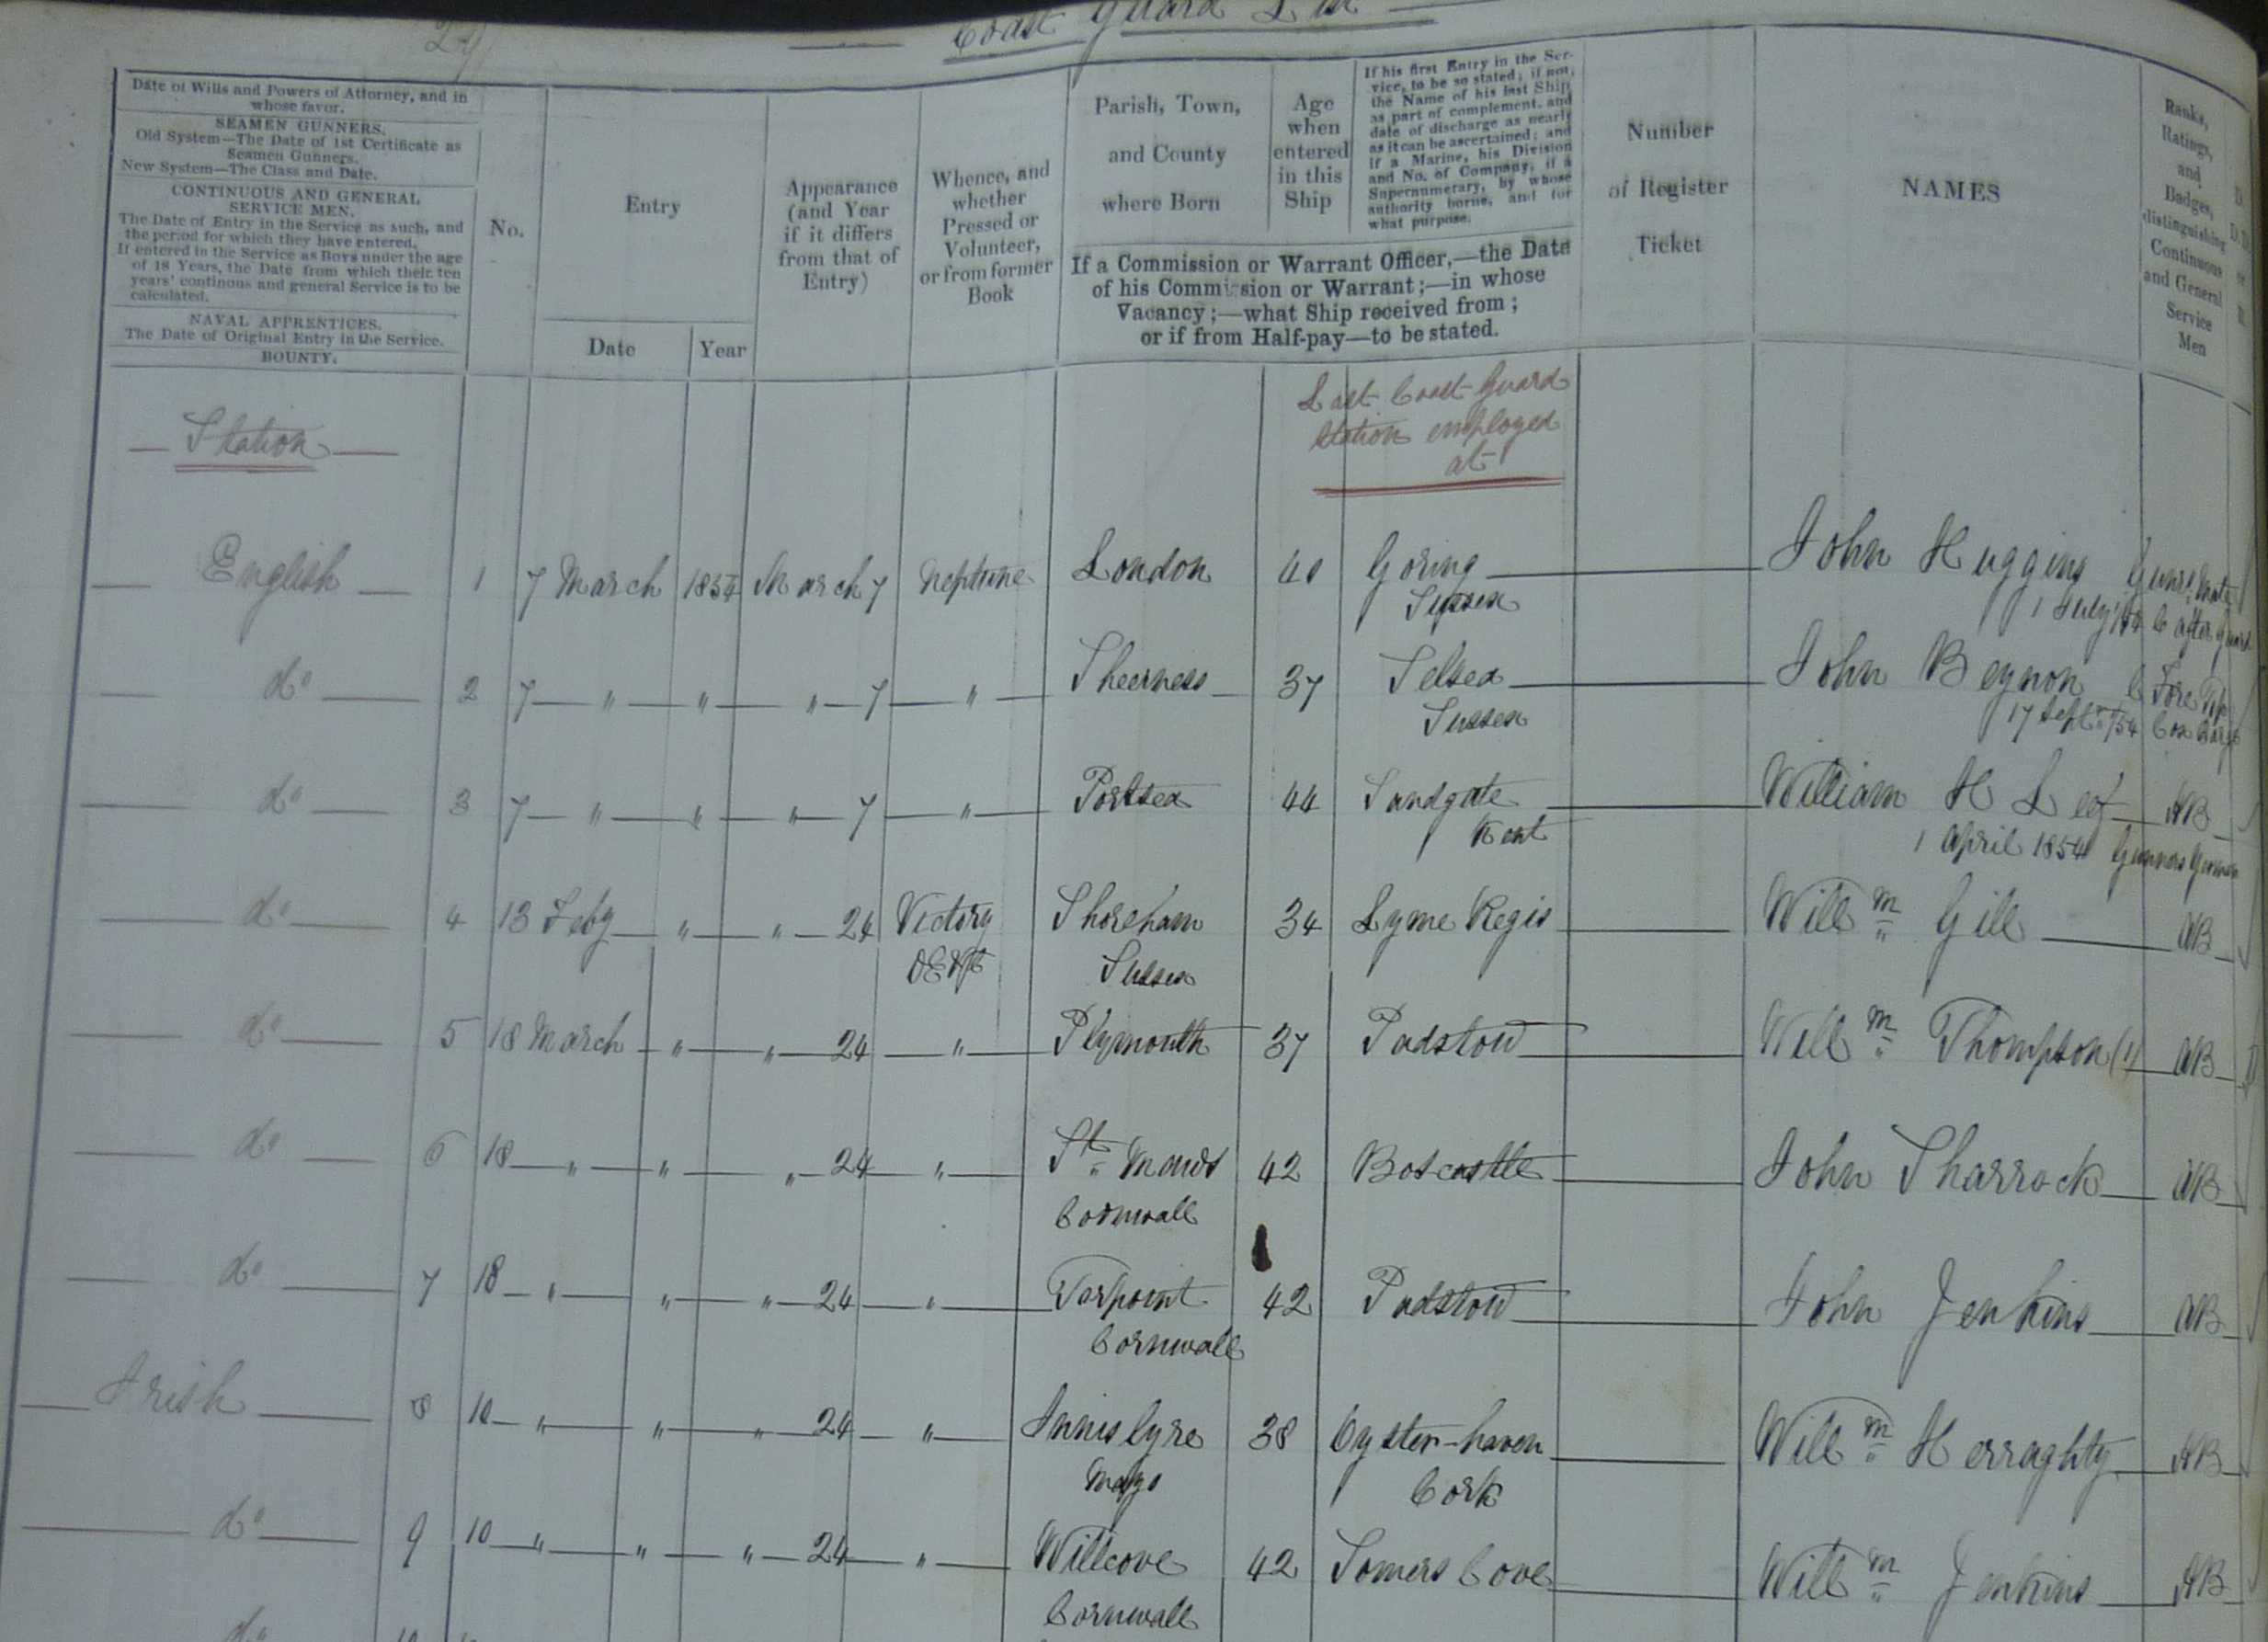 29
Coast Guard List
Date of Wills and Powers of Attorney, and in
whose favor.
SEAMEN GUNNERS.
Old System—The Date of 1st Certificate as
Seamen Gunners.
New System—The Class and Date.
CONTINUOUS AND GENERAL
SERVICE MEN.
The Date of Entry in the Service as such, and
the period for which they have entered.
If entered in the Service as Boys under the age
of 18 Years, the Date from which their ten
years' continous and general Service is to be
calculated.
NAVAL APPRENTICES.
The Date of Original Entry in the Service.
BOUNTY.
No.
Entry
Date
Year
Appearance
(and Year
if it differs
from that of
Entry)
Whence, and
whether
Pressed or
Volunteer,
or from former
Book
Parish, Town,
and County
where Born
Age
when
entered
in this
Ship
If his first Entry in the Ser-
vice, to be so stated; if not,
the Name of his last Ship,
as part of complement, and
date of discharge as nearly
as it can be ascertained; and
if a Marine, his Division
and No. of Company, if a
Supernumerary, by whose
authority borne, and for
what purpose.
If a Commission or Warrant Officer,—the Date
of his Commission or Warrant;—in whose
Vacancy;—what Ship received from;
or if from Half-pay—to be stated.
Number
of Register
Ticket
NAMES
Ranks,
Ratings,
and
Badges,
distinguishing
Continuous
and General
Service
Men
Station
Last Coast Guard
Station employed
at
English 1 7 March 1854 March 7 Neptune London 40 Goring John Huggins Gunrs Mate
Sussex 1 July /54 C after Guard
do 2 7 " " " 7 " Sheerness 37 Selsea John Beynon C Fore Top
Sussex 17 Sept /54 Cox Barge
do 3 7 " " " 7 " Portsea 44 Sandgate William H Leg AB
Kent 1 April 1854 Gunners
do 4 13 Feby " " 24 Victory Shoreham 34 Lyme Regis Willm Gill AB
Sussex
do 5 18 March " " 24 " Plymouth 37 Padstow Willm Thompson (1) AB
do 6 18 " " " 24 " St Maws 42 Boscastle John Sharrock AB
Cornwall
do 7 18 " " " 24 " Torpoint 42 Padstow John Jenkins AB
Cornwall
Irish 8 10 " " " 24 " Innislyre 38 Oyster-haven Willm Herraghty AB
Mayo Cork
do 9 10 " " " 24 " Willcove 42 Somers Cove Willm Jenkins AB
Cornwall
do 10